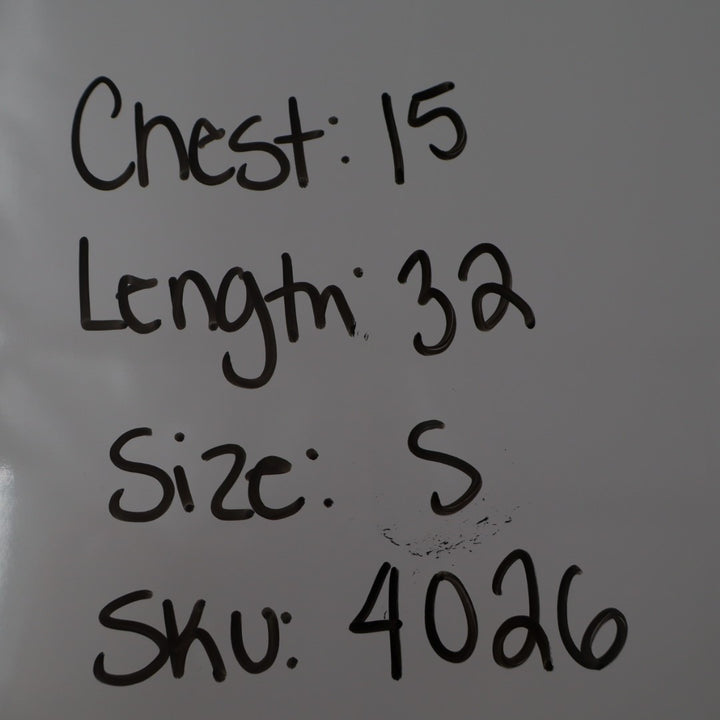 Chest: 15
Length: 32
Size: S
SKU: 4026